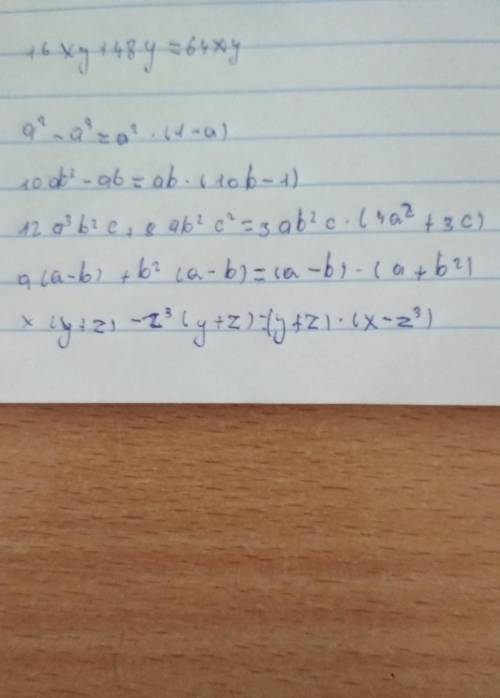 16xy+48y=64xy
a² - a³ = a² · (1-a)
10ab² - ab = ab · (10b-1)
12a³b²c + 9ab²c² = 3ab²c · (4a² + 3c)
a(a-b) + b² (a-b) = (a-b) · (a+b²)
x(y+z) - z³(y+z) = (y+z) · (x-z³)